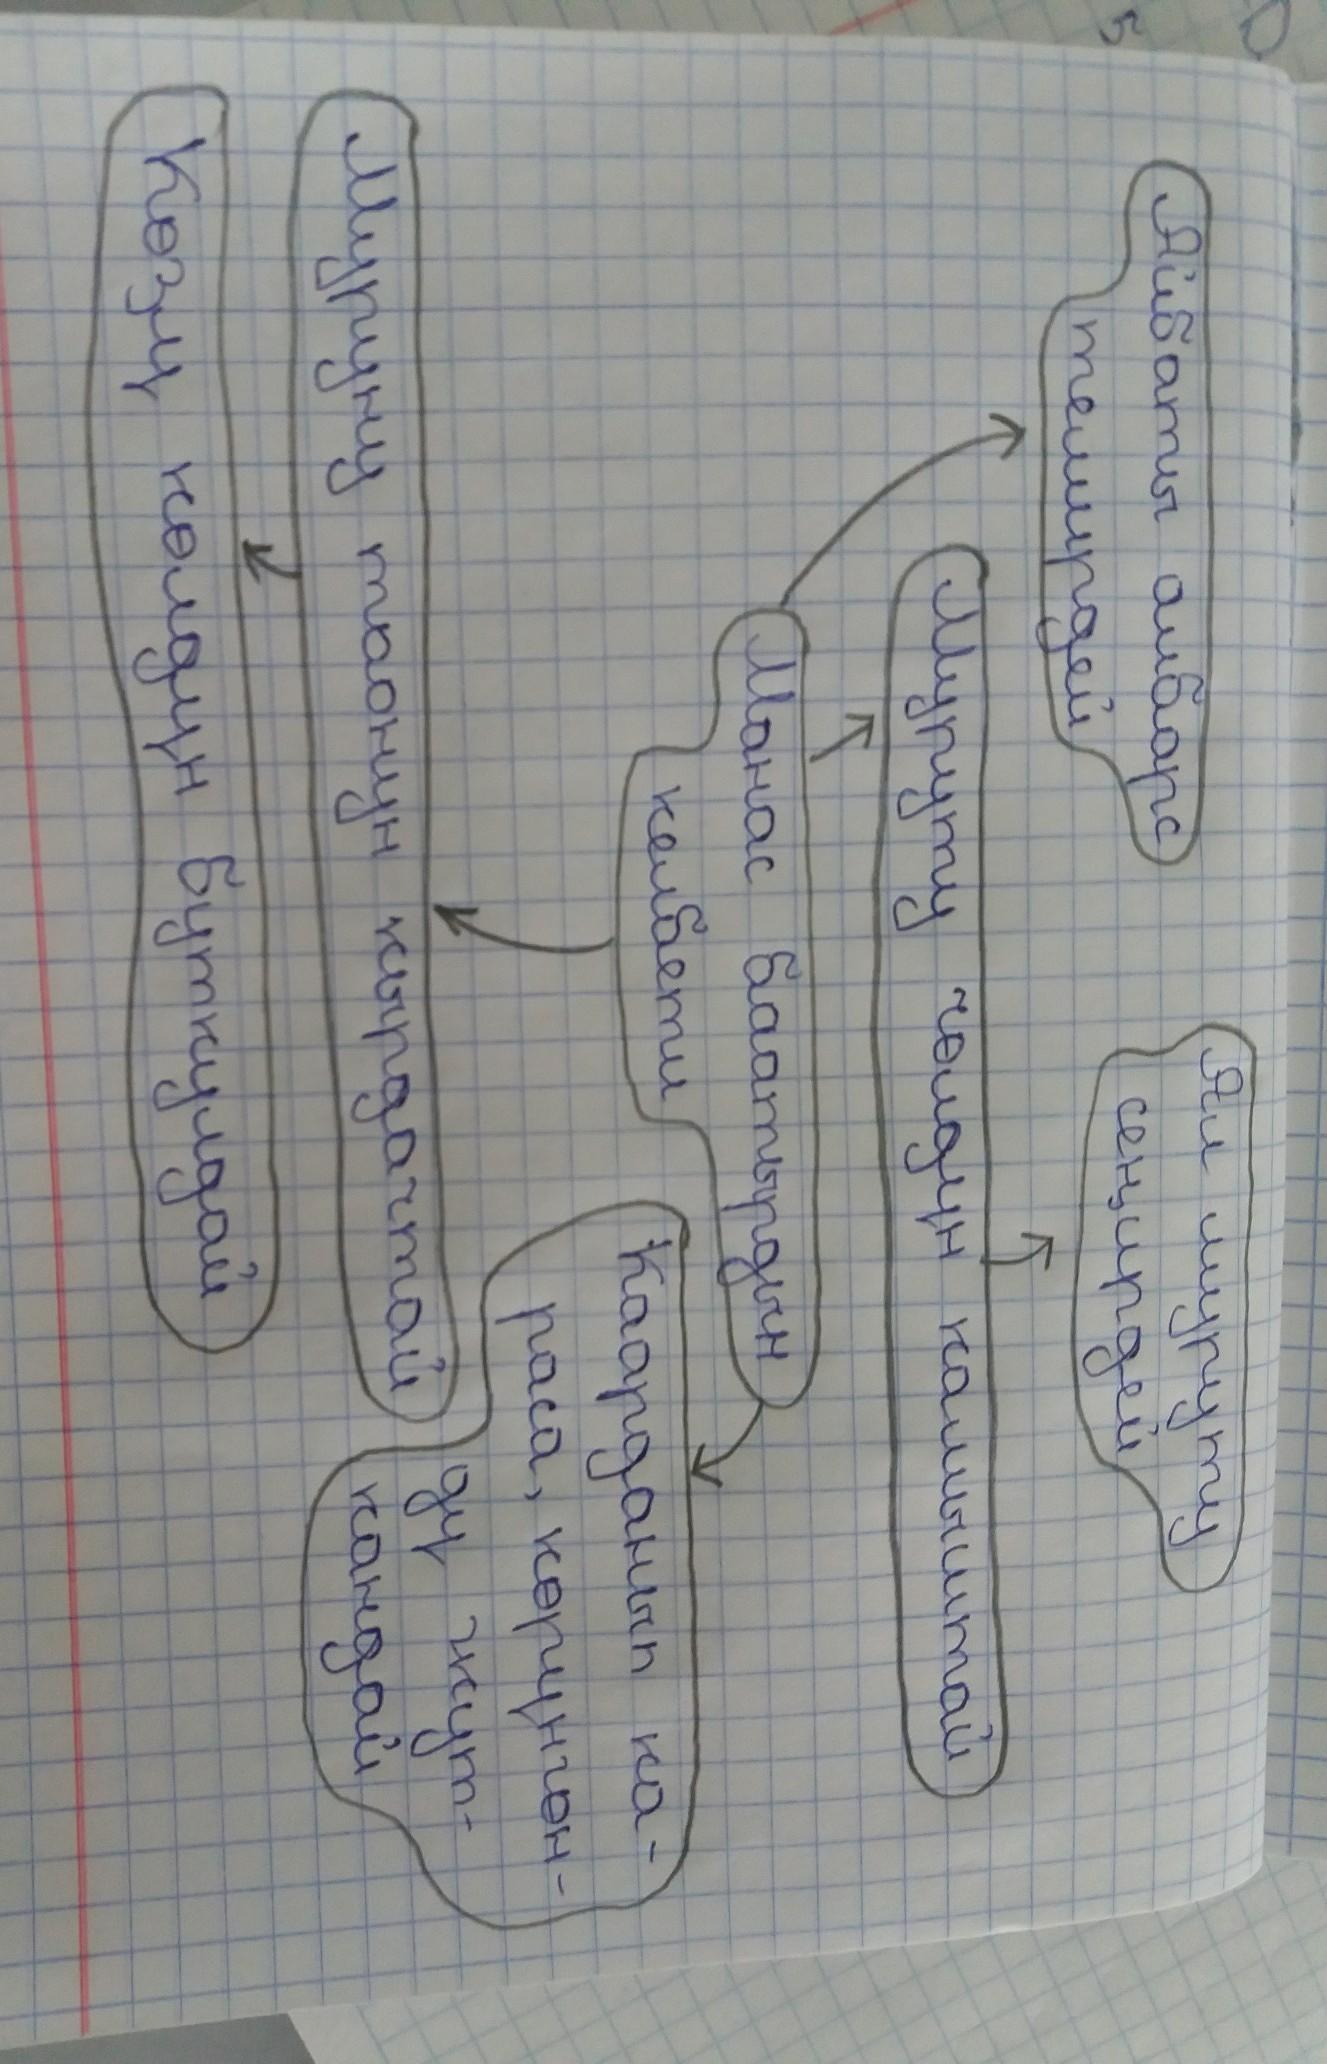 Айбаты албарс
темирдей
Ал муруту
сеңирдей
Муруту чөлдүн камыштай
Манас баатырдын
келбети
Каарданып ка-
раса, көрүнгөн-
дү жут-
кандай
Муруну тоонун кырдачтай
Көзү көлдүн буткулдай